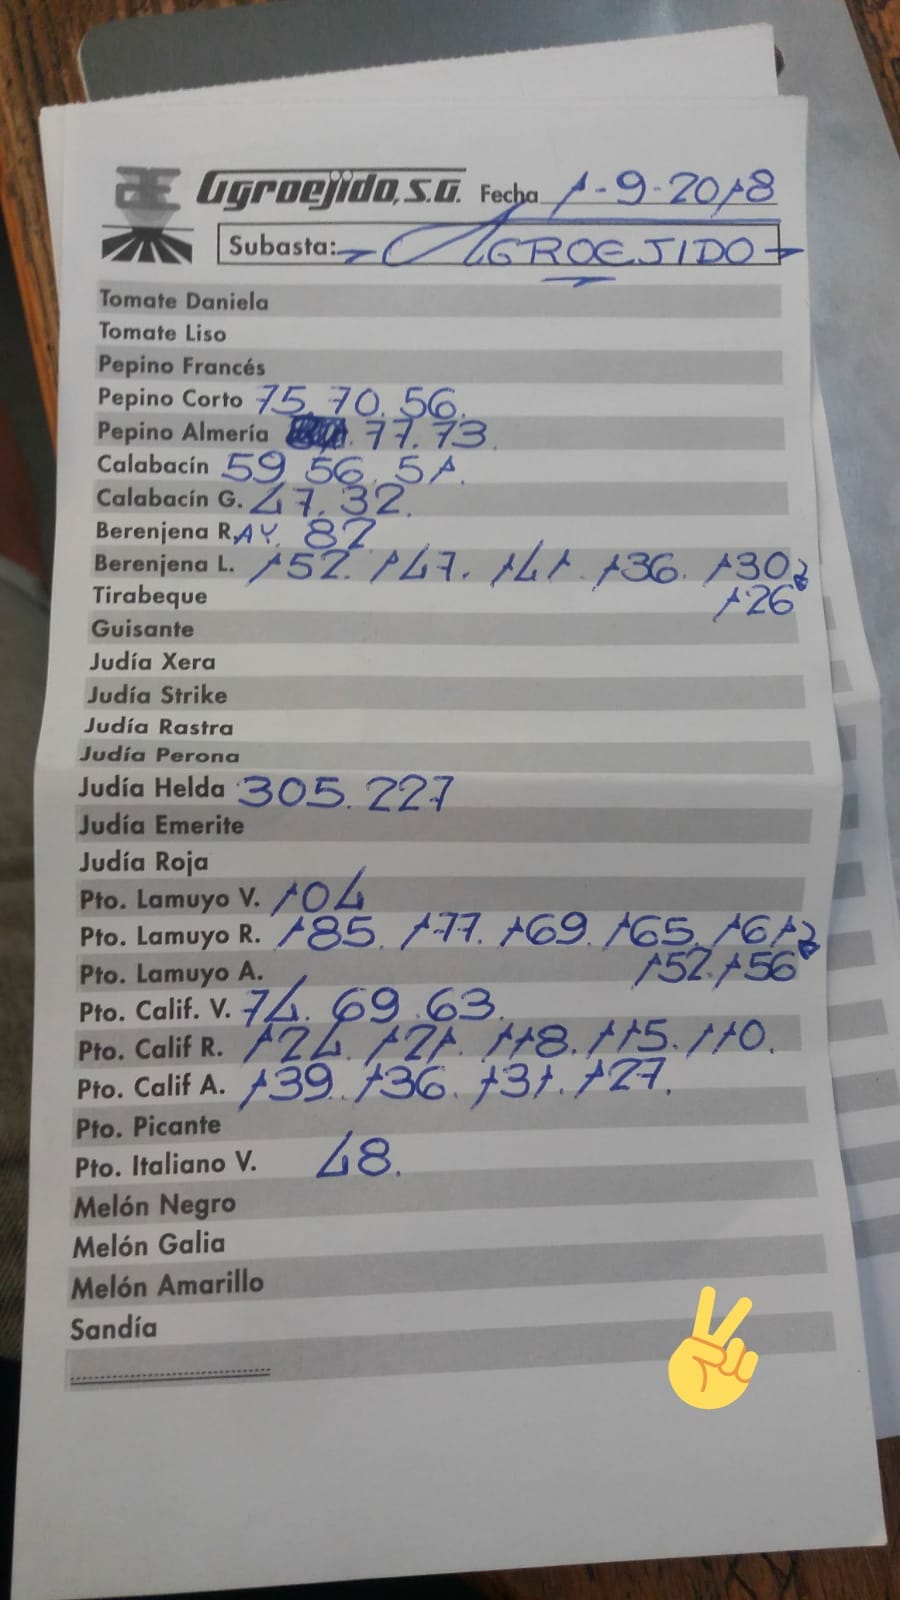 AE Agroejido, S.A. Fecha 1-9-2018
Subasta: AGROEJIDO
Tomate Daniela
Tomate Liso
Pepino Francés
Pepino Corto 75. 70. 56.
Pepino Almería 77. 73.
Calabacín 59 56. 51.
Calabacín G. 47. 32.
Berenjena RAY. 82
Berenjena L. 152. 147. 141. 136. 130
126
Tirabeque
Guisante
Judía Xera
Judía Strike
Judía Rastra
Judía Perona
Judía Helda 305. 227
Judía Emerite
Judía Roja
Pto. Lamuyo V. 104
Pto. Lamuyo R. 185. 177. 169. 165. 161
152. 156
Pto. Lamuyo A.
Pto. Calif. V. 74. 69. 63.
Pto. Calif R. 124. 121. 118. 115. 110.
Pto. Calif A. 139. 136. 131. 127.
Pto. Picante
Pto. Italiano V. 48.
Melón Negro
Melón Galia
Melón Amarillo
Sandía